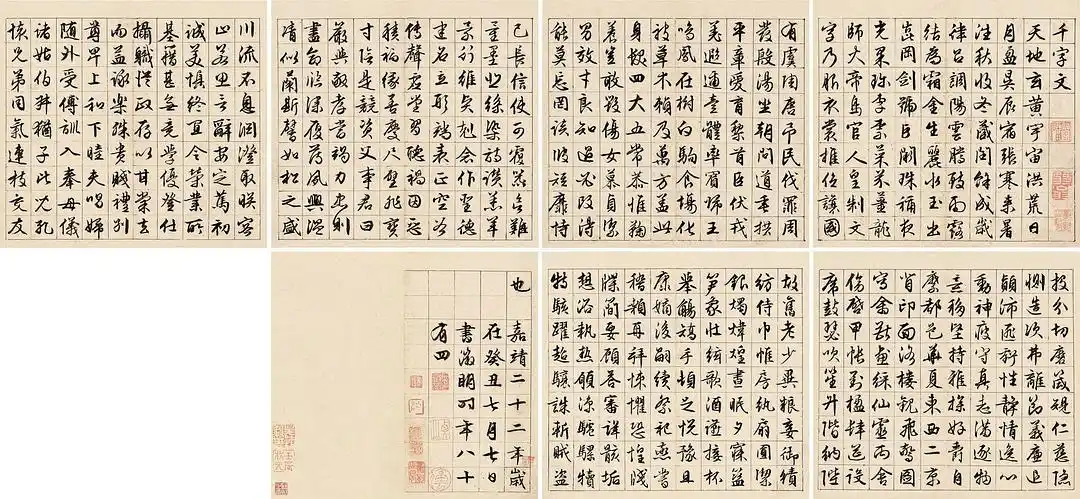 千字文
天地玄黄宇宙洪荒日
月盈昃辰宿張寒来暑
往秋收冬藏閏餘成歲
律吕調陽雲騰致雨露
結為霜金生麗水玉出
崑岡劍號巨闕珠稱夜
光果珎李柰菜芥薑龍
師火帝鳥官人皇制文
字乃服衣裳推位讓國
有虞陶唐弔民伐罪周
發殷湯坐朝問道垂拱
平章愛育黎首臣伏戎
羌遐邇壹體率賓歸王
鳴鳳在樹白駒食場化
被草木賴及萬方蓋此
身髮四大五常恭惟鞠
養豈敢毀傷女慕貞潔
男效才良知過必改得
能莫忘罔談彼短靡恃
己長信使可覆器欲難
量墨悲絲染詩讚羔羊
景行維賢剋念作聖德
建名立形端表正空谷
傳聲虛堂習聽禍因惡
積福緣善慶尺璧非寶
寸陰是競資父事君曰
嚴與敬孝當竭力忠則
盡命臨深履薄夙興溫
凊似蘭斯馨如松之盛
川流不息淵澄取暎容
止若思言辭安定篤初
誠美慎終宜令榮業所
基籍甚無竟學優登仕
攝職從政存以甘棠去
而益詠樂殊貴賤禮別
尊卑上和下睦夫唱婦
隨外受傅訓入奉母儀
諸姑伯叔猶子比兒孔
懷兄弟同氣連枝交友
投分切磨箴規仁慈隱
惻造次弗離節義廉退
顛沛匪虧性靜情逸心
動神疲守真志滿逐物
意移堅持雅操好爵自
縻都邑華夏東西二京
背邙面洛樓觀飛驚圖
寫禽獸畫綵仙靈丙舍
傍啟甲帳對楹肆筵設
席鼓瑟吹笙升階納陛
故舊老少異糧妾御績
紡侍巾帷房紈扇圓潔
銀燭煒煌晝眠夕寐藍
笋象牀絃歌酒讌接杯
舉觴矯手頓足悅豫且
康嫡後嗣續祭祀烝嘗
稽顙再拜悚懼恐惶牋
牒簡要顧答審詳骸垢
想浴執熱願涼驢騾犢
特駭躍超驤誅斬賊盜
也
嘉靖二十二年歲
在癸丑七月七日
書徵明時年八十
有四